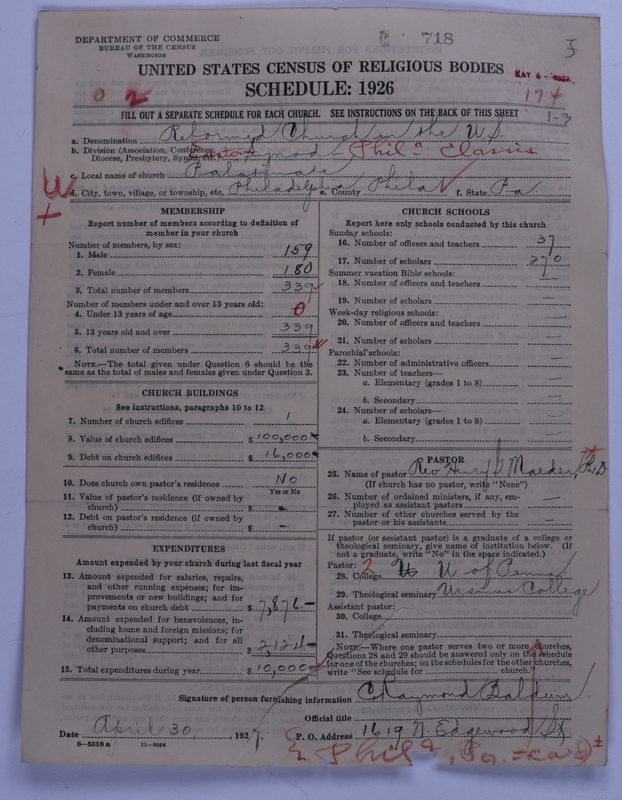 718
DEPARTMENT OF COMMERCE
BUREAU OF THE CENSUS
WASHINGTON
UNITED STATES CENSUS OF RELIGIOUS BODIES
SCHEDULE: 1926
MAY 6 - 1927
174
FILL OUT A SEPARATE SCHEDULE FOR EACH CHURCH. SEE INSTRUCTIONS ON THE BACK OF THIS SHEET
1-3
a. Denomination Reformed Church in the U.S.
b. Division (Association, Conference, Diocese, Presbytery, Synod, Eastern Synod - Phila Classis
c. Local name of church Palatinate
d. City, town, village, or township, etc. Philadelphia e. County Phila f. State Pa
MEMBERSHIP
Report number of members according to definition of member in your church
Number of members, by sex:
1. Male 159
2. Female 180
3. Total number of members 339
Number of members under and over 13 years old:
4. Under 13 years of age 0
5. 13 years old and over 339
6. Total number of members 339
NOTE.—The total given under Question 6 should be the same as the total of males and females given under Question 3.
CHURCH BUILDINGS
See instructions, paragraphs 10 to 12
7. Number of church edifices 1
8. Value of church edifices $ 100,000
9. Debt on church edifices $ 16,000
10. Does church own pastor's residence No
Yes or No
11. Value of pastor's residence (if owned by church) $ -
12. Debt on pastor's residence (if owned by church) $ -
EXPENDITURES
Amount expended by your church during last fiscal year
13. Amount expended for salaries, repairs, and other running expenses; for improvements or new buildings; and for payments on church debt $ 7,876—
14. Amount expended for benevolences, including home and foreign missions; for denominational support; and for all other purposes $ 2,124—
15. Total expenditures during year $ 10,000
CHURCH SCHOOLS
Report here only schools conducted by this church
Sunday schools:
16. Number of officers and teachers 37
17. Number of scholars 270
Summer vacation Bible schools:
18. Number of officers and teachers —
19. Number of scholars —
Week-day religious schools:
20. Number of officers and teachers —
21. Number of scholars —
Parochial schools:
22. Number of administrative officers —
23. Number of teachers—
a. Elementary (grades 1 to 8) —
b. Secondary —
24. Number of scholars—
a. Elementary (grades 1 to 8) —
b. Secondary —
PASTOR
25. Name of pastor Rev. Henry I. Maeder, Ph.D
(If church has no pastor, write "None")
26. Number of ordained ministers, if any, employed as assistant pastors —
27. Number of other churches served by the pastor or his assistants —
If pastor (or assistant pastor) is a graduate of a college or theological seminary, give name of institution below. (If not a graduate, write "No" in the space indicated.)
Pastor: 2
28. College U of Penna
29. Theological seminary Ursinus College
Assistant pastor:
30. College
31. Theological seminary
NOTE.—Where one pastor serves two or more churches, Questions 28 and 29 should be answered only on the schedule for one of the churches; on the schedules for the other churches, write "See schedule for church."
Signature of person furnishing information C. Raymond Baldwin
Official title
Date April 30, 1927. P. O. Address 1619 N. Edgewood St
8-5518 a 11-9084
Phila, Pa. - card